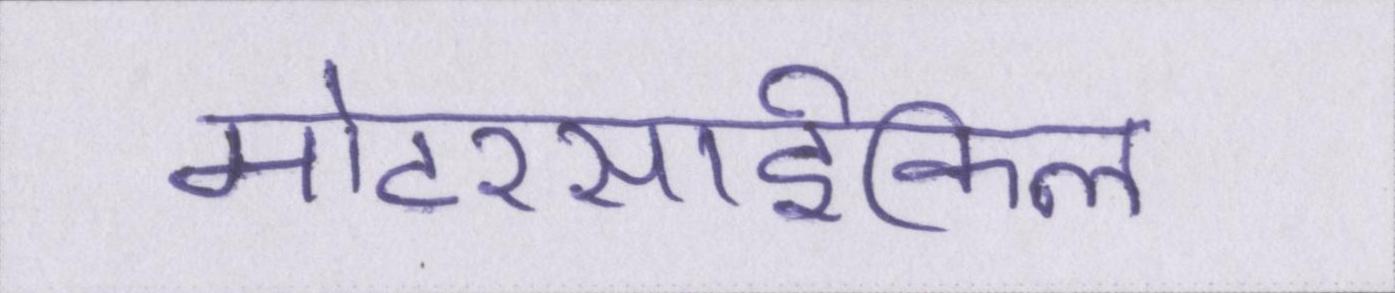 मोटरसाईकिल